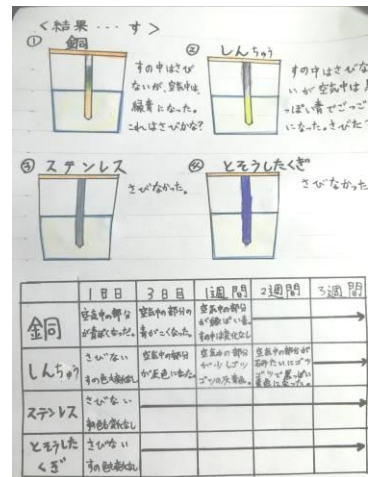 <結果・・・す>
① 銅
すの中はさび
ないが、空気中は、
緑青になった。
これはさびかな?
② しんちゅう
すの中はさびな
いが空気中は
っぽい青でごつご
になった。さびた
③ ステンレス
さびなかった。
④ とそうしたくぎ
さびなかった
1日目 3日目 1週間 2週間 3週間
銅
空気中の部分
が青ぽくなった。
空気中の部分の
青がこくなった。
空気中の部分
が緑ぽい青。
すの中は変化なし
しんちゅう
さびない
すの色も変化なし
空気中の部分
が灰色になった。
空気中の部分
が少しゴツ
ゴツの灰青色。
空気中の部分が
石みたいにゴツ
ゴツで黒っぽい
青色になった。
ステンレス
さびない
色も変化なし
とそうした
くぎ
さびない
すの色も変化なし